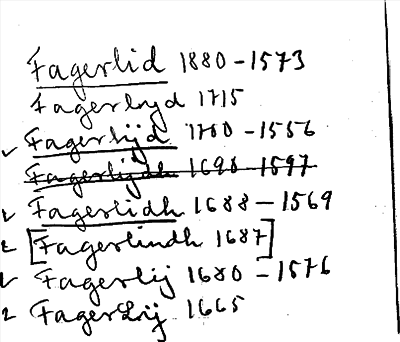 Fagerlid 1880-1573
Fagerlyd 1715
✓ Fagerlijd 1700-1556
Fagerlijdh 1690-1597
✓ Fagerlidh 1688-1569
✓ [Fagerlindh 1687]
✓ Fagerlij 1680-1576
✓ Fagerlij 1665